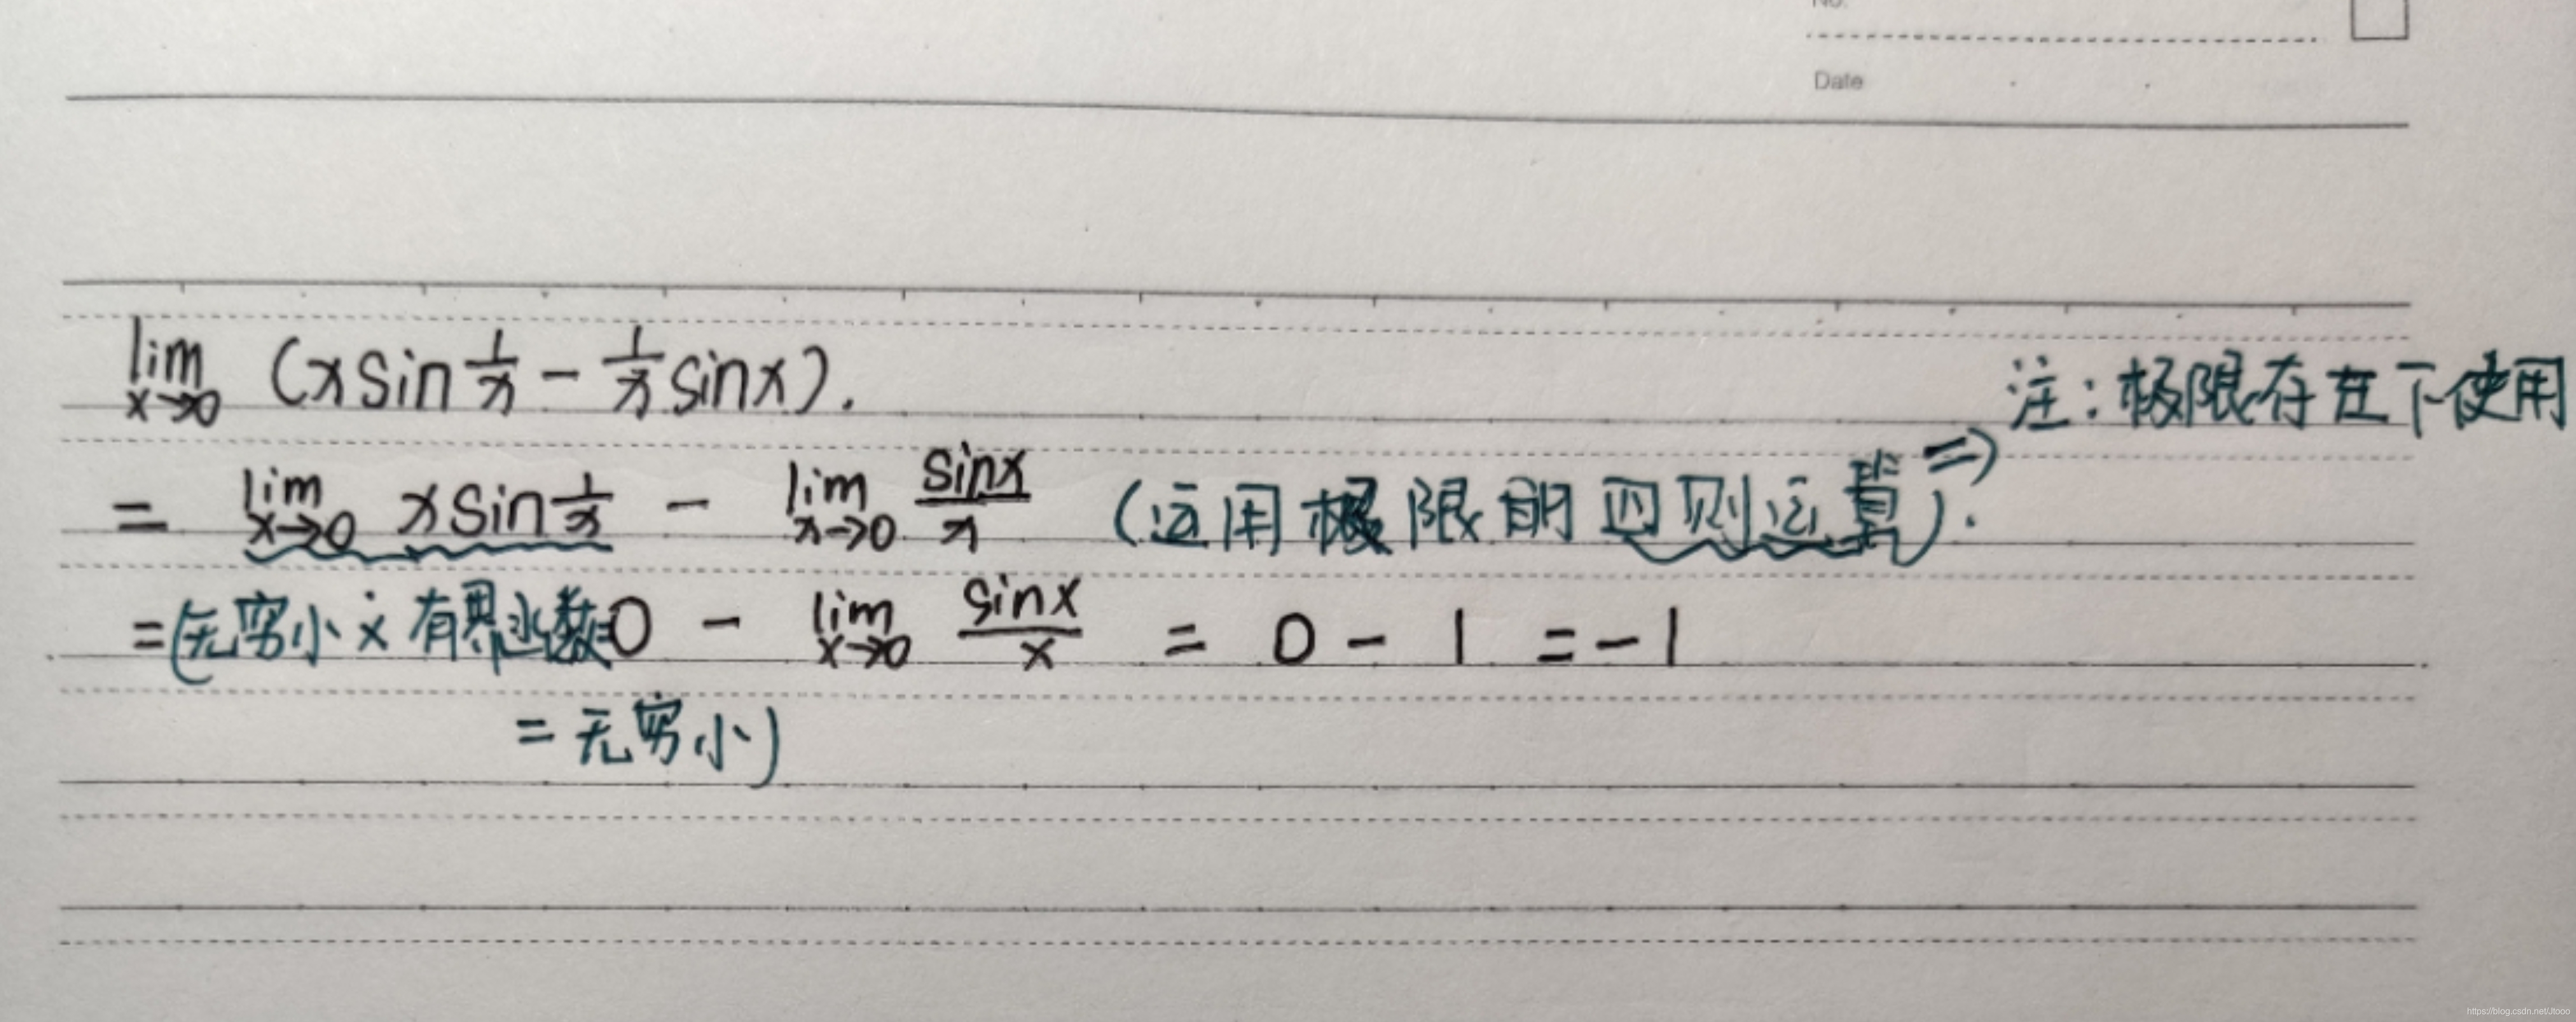 No.
Date
lim x→0 (x sin 1/x - 1/x sinx).
注：极限存在下使用
= lim x→0 x sin 1/x - lim x→0 sinx/x (运用极限的四则运算⇒).
=(无穷小 × 有界函数=0 - lim x→0 sinx/x = 0 - 1 = -1
= 无穷小)
https://blog.csdn.net/Jtooo